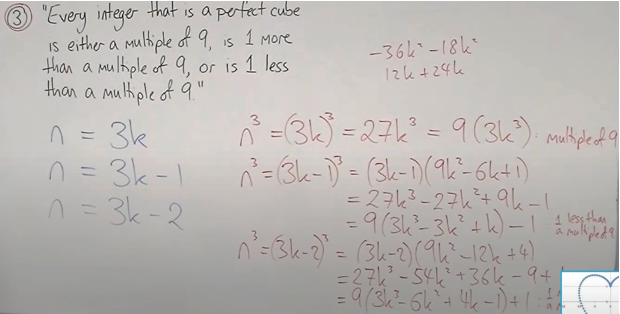 ③ "Every integer that is a perfect cube
is either a multiple of 9, is 1 more
than a multiple of 9, or is 1 less
than a multiple of 9."
-36k² - 18k²
12k + 24k
n = 3k
n = 3k - 1
n = 3k - 2
n³ = (3k)³ = 27k³ = 9(3k³) : multiple of 9
n³ = (3k-1)³ = (3k-1)(9k²-6k+1)
= 27k³ - 27k² + 9k - 1
= 9(3k³ - 3k² + k) - 1 1 less than
a multiple of 9
n³ = (3k-2)³ = (3k-2)(9k²-12k+4)
= 27k³ - 54k² + 36k - 9 +
= 9(3k³ - 6k² + 4k - 1) + 1 :